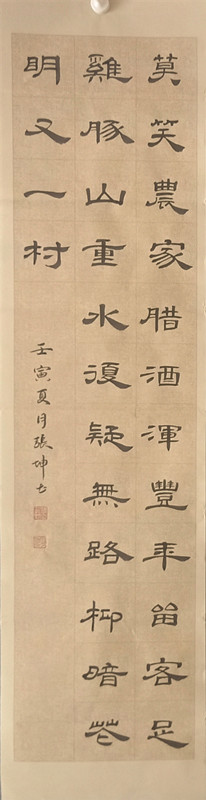 莫笑農家腊酒渾豐年留客足
雞豚山重水復疑無路柳暗花
明又一村
壬寅夏月張坤書